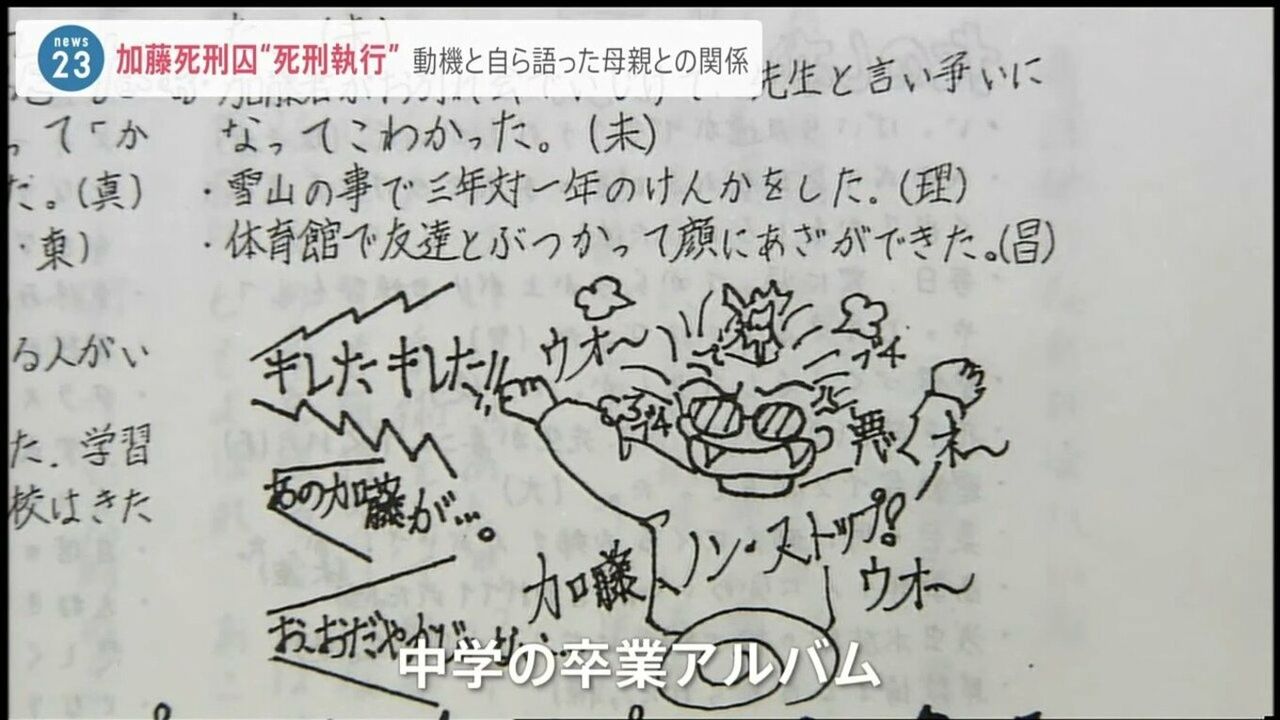 news
23
加藤死刑囚“死刑執行” 動機と自ら語った母親との関係
先生と言い争いに
なってこわかった。(未)
・雪山の事で三年対一年のけんかをした。(理)
・体育館で友達とぶつかって顔にあざができた。(昌)
ってか
だ。(真)
・東)
る人がい
た。学習
校はきた
キレた キレた!!
ウオ〜
あの加藤が…。
加藤
ノン・ストップ!
ウオ〜
中学の卒業アルバム